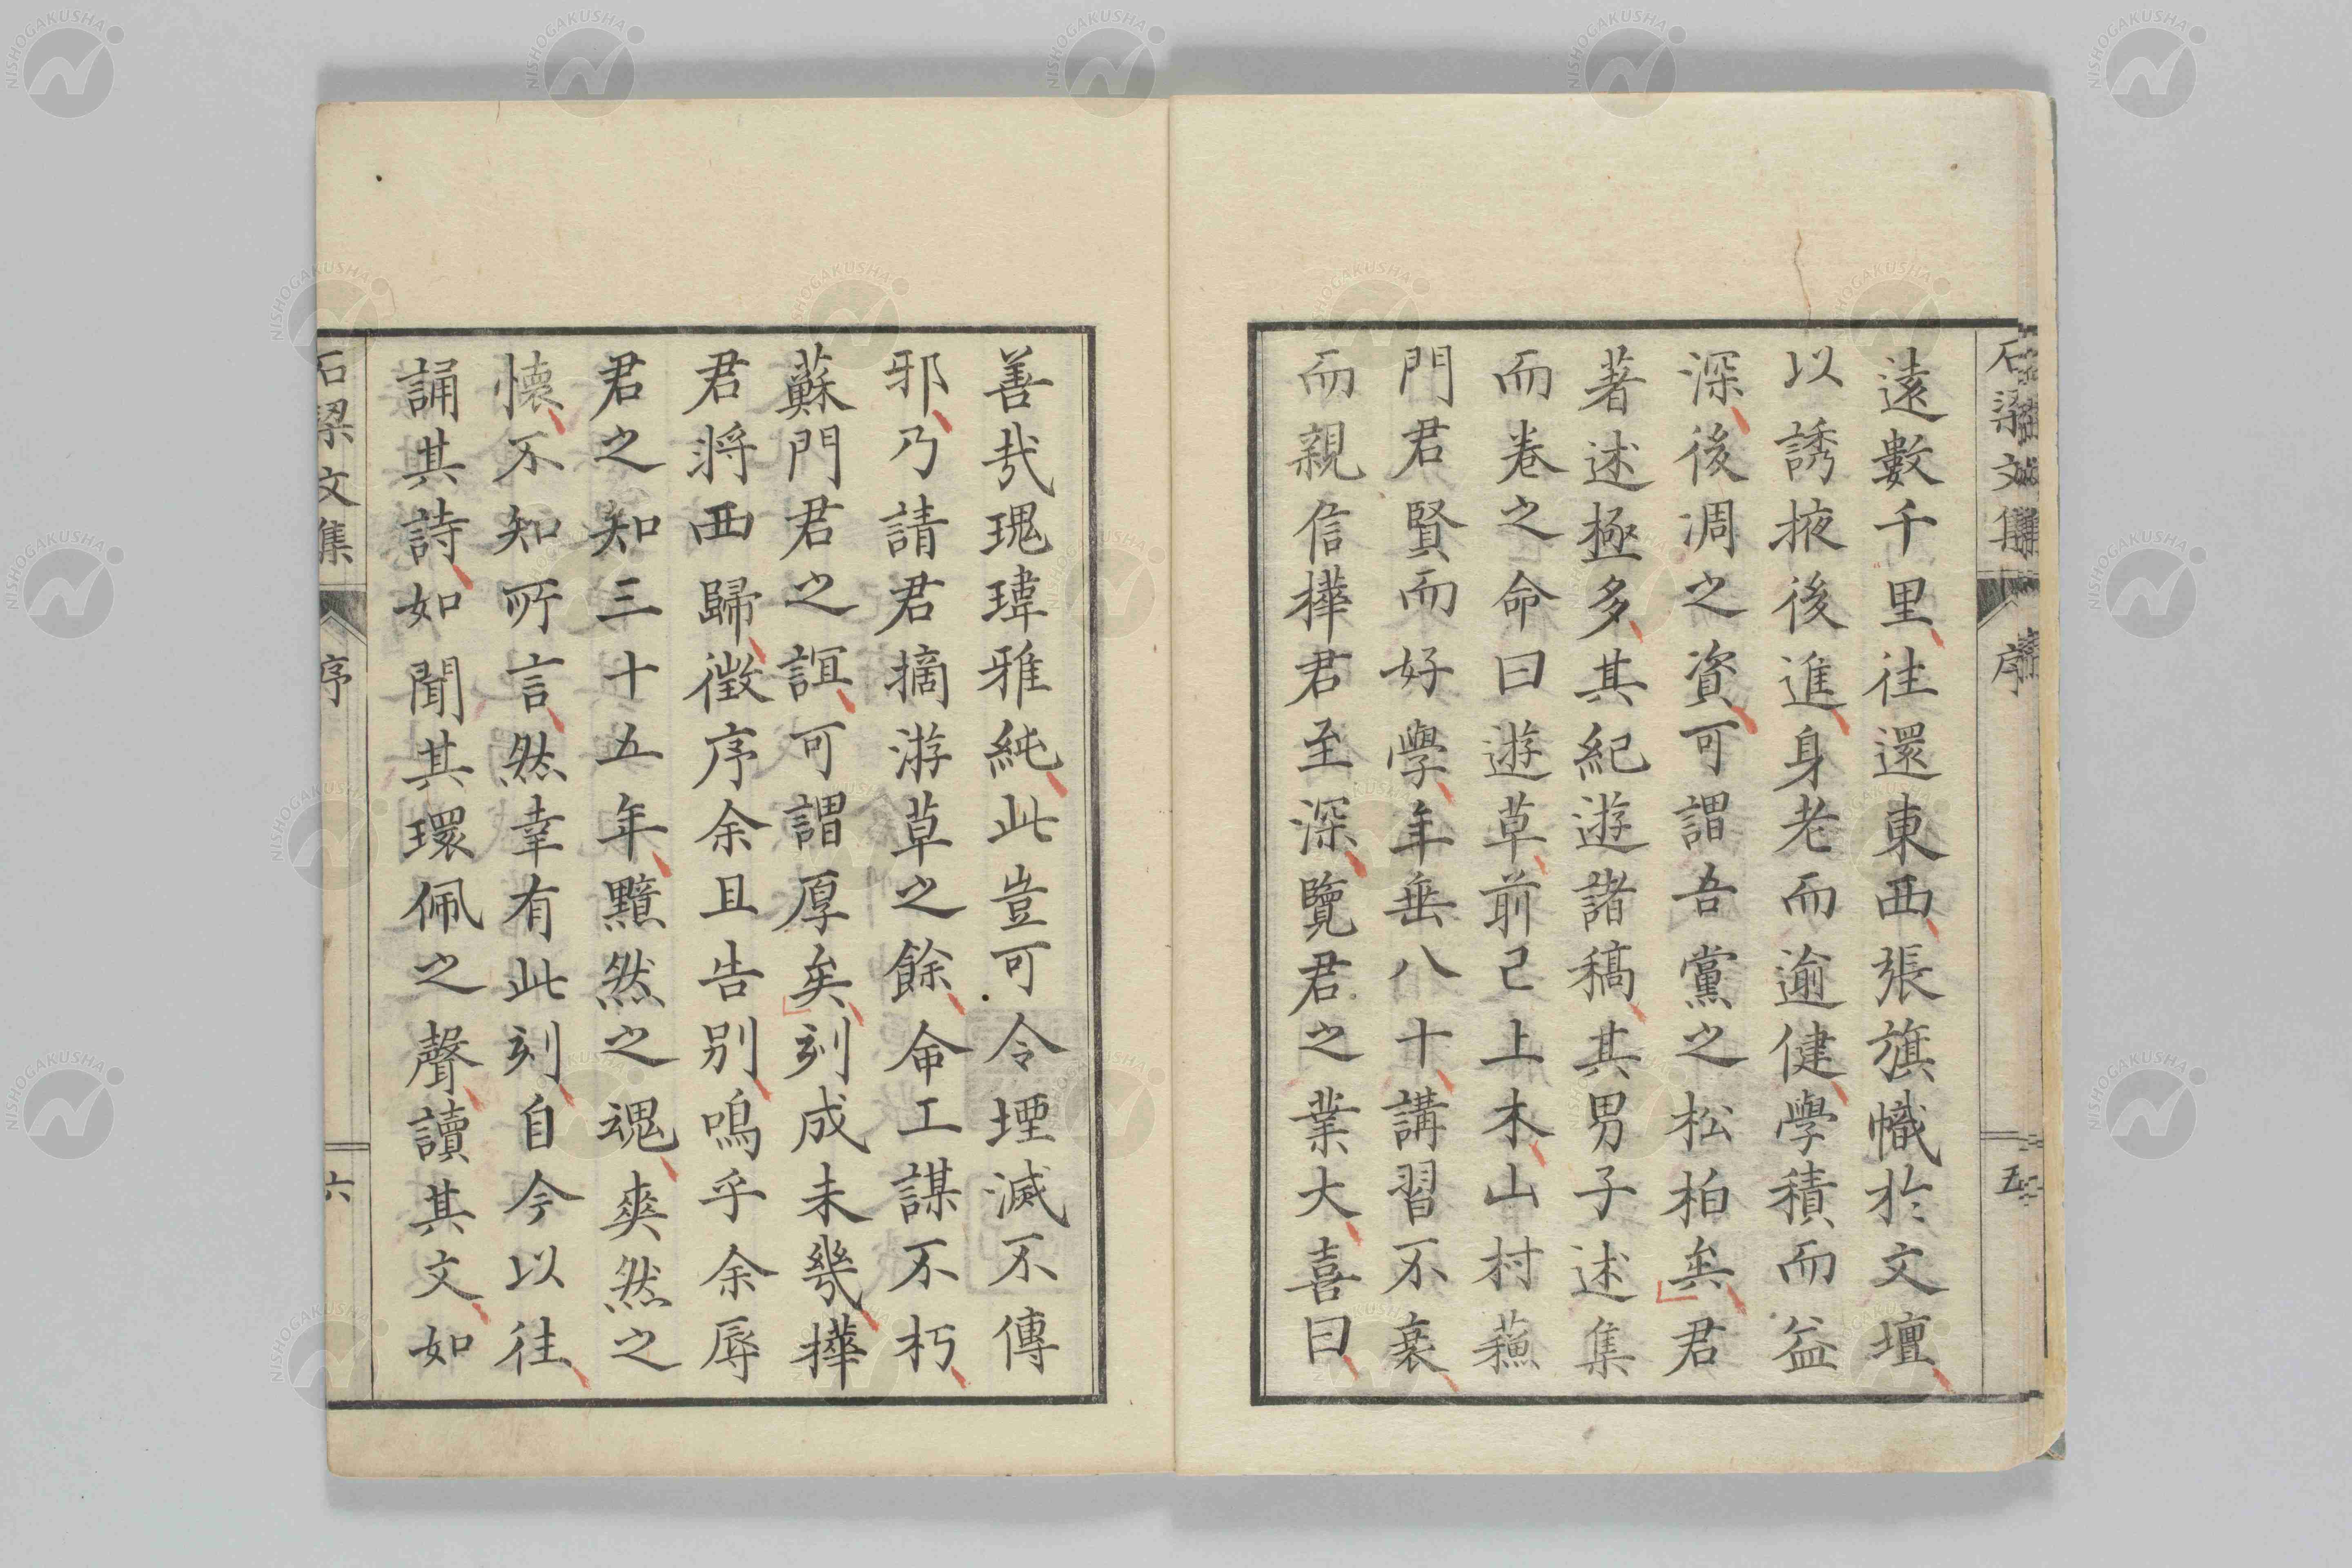 石梁文集 序 五
遠數千里往還東西張旗幟於文壇
以誘掖後進身老而逾健學積而益
深後凋之資可謂吾黨之松柏矣君
著述極多其紀遊諸稿其男子述集
而卷之命曰遊草前已上木山村蘓
門君賢而好學年垂八十講習不衰
而親信擇君至深覽君之業大喜曰
善哉瑰瑋雅純此豈可令堙滅不傳
邪乃請君摘游草之餘命工謀不朽
蘇門君之誼可謂厚矣刻成未幾擇
君將西歸徵序余且告別嗚乎余辱
君之知三十五年黯然之魂爽然之
懷不知所言然幸有此刻自今以往
誦其詩如聞其環佩之聲讀其文如
石梁文集 序 六
NISHOGAKUSHA